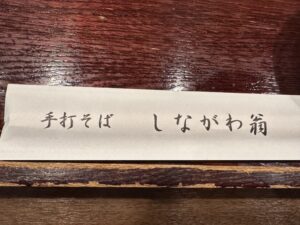 手打そば　しながわ翁